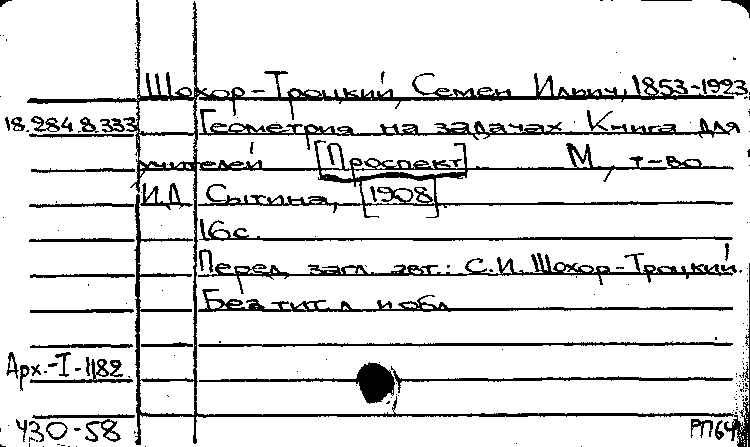 Шохор-Троцкий, Семен Ильич, 1853-1923
18.284.8.333 Геометрия на задачах. Книга для
учителей [Проспект]. М., т-во
И.Д. Сытина, [1908].
16 с.
Перед загл. авт.: С.И. Шохор-Троцкий.
Без тит. л. и обл.
Арх.-I-1182
У30-58 РП64